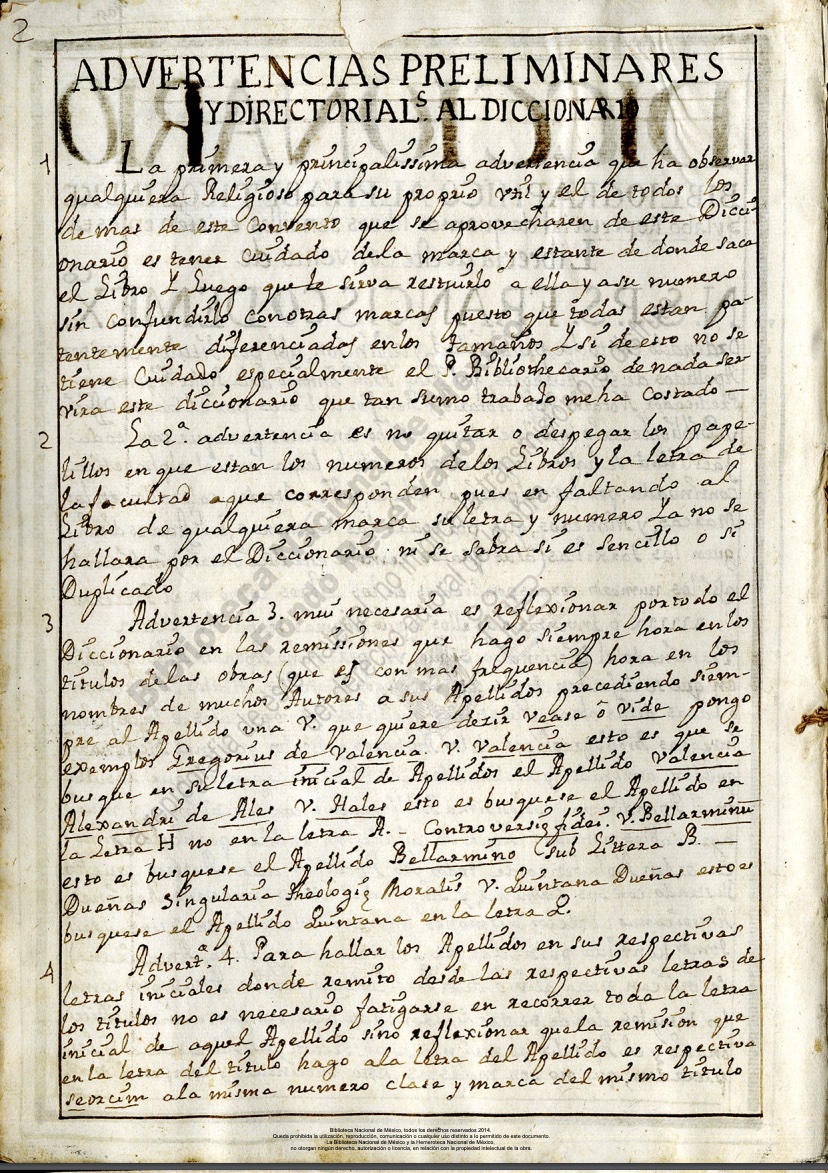 2
ADVERTENCIAS PRELIMINARES
Y DIRECTORIALS. AL DICCIONARIO
1 La primera y principalissima advertencia que ha observar
qualquiera Religioso para su proprio vtil y el de todos los
de mas de este Convento que se aprovecharen de este Dicci-
onario es tener Cuidado dela marca y estante de donde saca
el Libro Y Luego que le sirva restuirlo a ella y a su numero
sin confundirlo con otras marcas puesto que todas estan pa-
tentemente diferenciadas enlos tamaños Y si de esto no se
tiene Cuidado especialmente el P. Bibliothecario de nada ser-
vira este diccionario que tan sumo trabajo meha Costado —
2 La 2ª. advertencia es no quitar o despegar los pape-
lillos en que estan los numeros delos Libros y la letra de
la facultad aque corresponden pues en faltando al
Libro de qualquiera marca su letra y numero Ya no se
hallara por el Diccionario ni se sabra si es sencillo o si
Duplicado
3 Advertencia 3. mui necesaria es reflexionar portodo el
Diccionario en las remissiones que hago siempre hora enlos
titulos delas obras (que es con mas frequencia) hora en los
nombres de muchos Autores a sus Apellidos precediendo siem-
pre al Apellido una V. que quiere dezir vease ô vide pongo
exemplos Gregorius de Valencia. V. Valencia esto es que se
busque en su letra inicial de Apellidos el Apellido Valencia
Alexandri de Ales V. Hales esto es busquese el Apellido en
la Letra H no en la letra A. – Controversię fidei. V. Bellarminu
esto es busquese el Apellido Bellarmino sub Littera B. —
Dueñas Singularia theologię Moralis V. Quintana Dueñas esto es
busquese el Apellido Quintana en la letra Q.
4 Advertª. 4. Para hallar los Apellidos en sus respectivas
letras iniciales donde remito desde las respectivas letras de
los titulos no es necesario fatigarse en recorrer toda la letra
inicial de aquel Apellido sino reflexionar quela remision que
en la letra del titulo hago ala letra del Apellido es respectiva
seorcim ala misma numero clase y marca del mismo titulo
Biblioteca Nacional de México, todos los derechos reservados 2014.
Queda prohibida la utilización, reproducción, comunicación o cualquier uso distinto a lo permitido de este documento.
La Biblioteca Nacional de México y la Hemeroteca Nacional de México,
no otorgan ningún derecho, autorización o licencia, en relación con la propiedad intelectual de la obra.